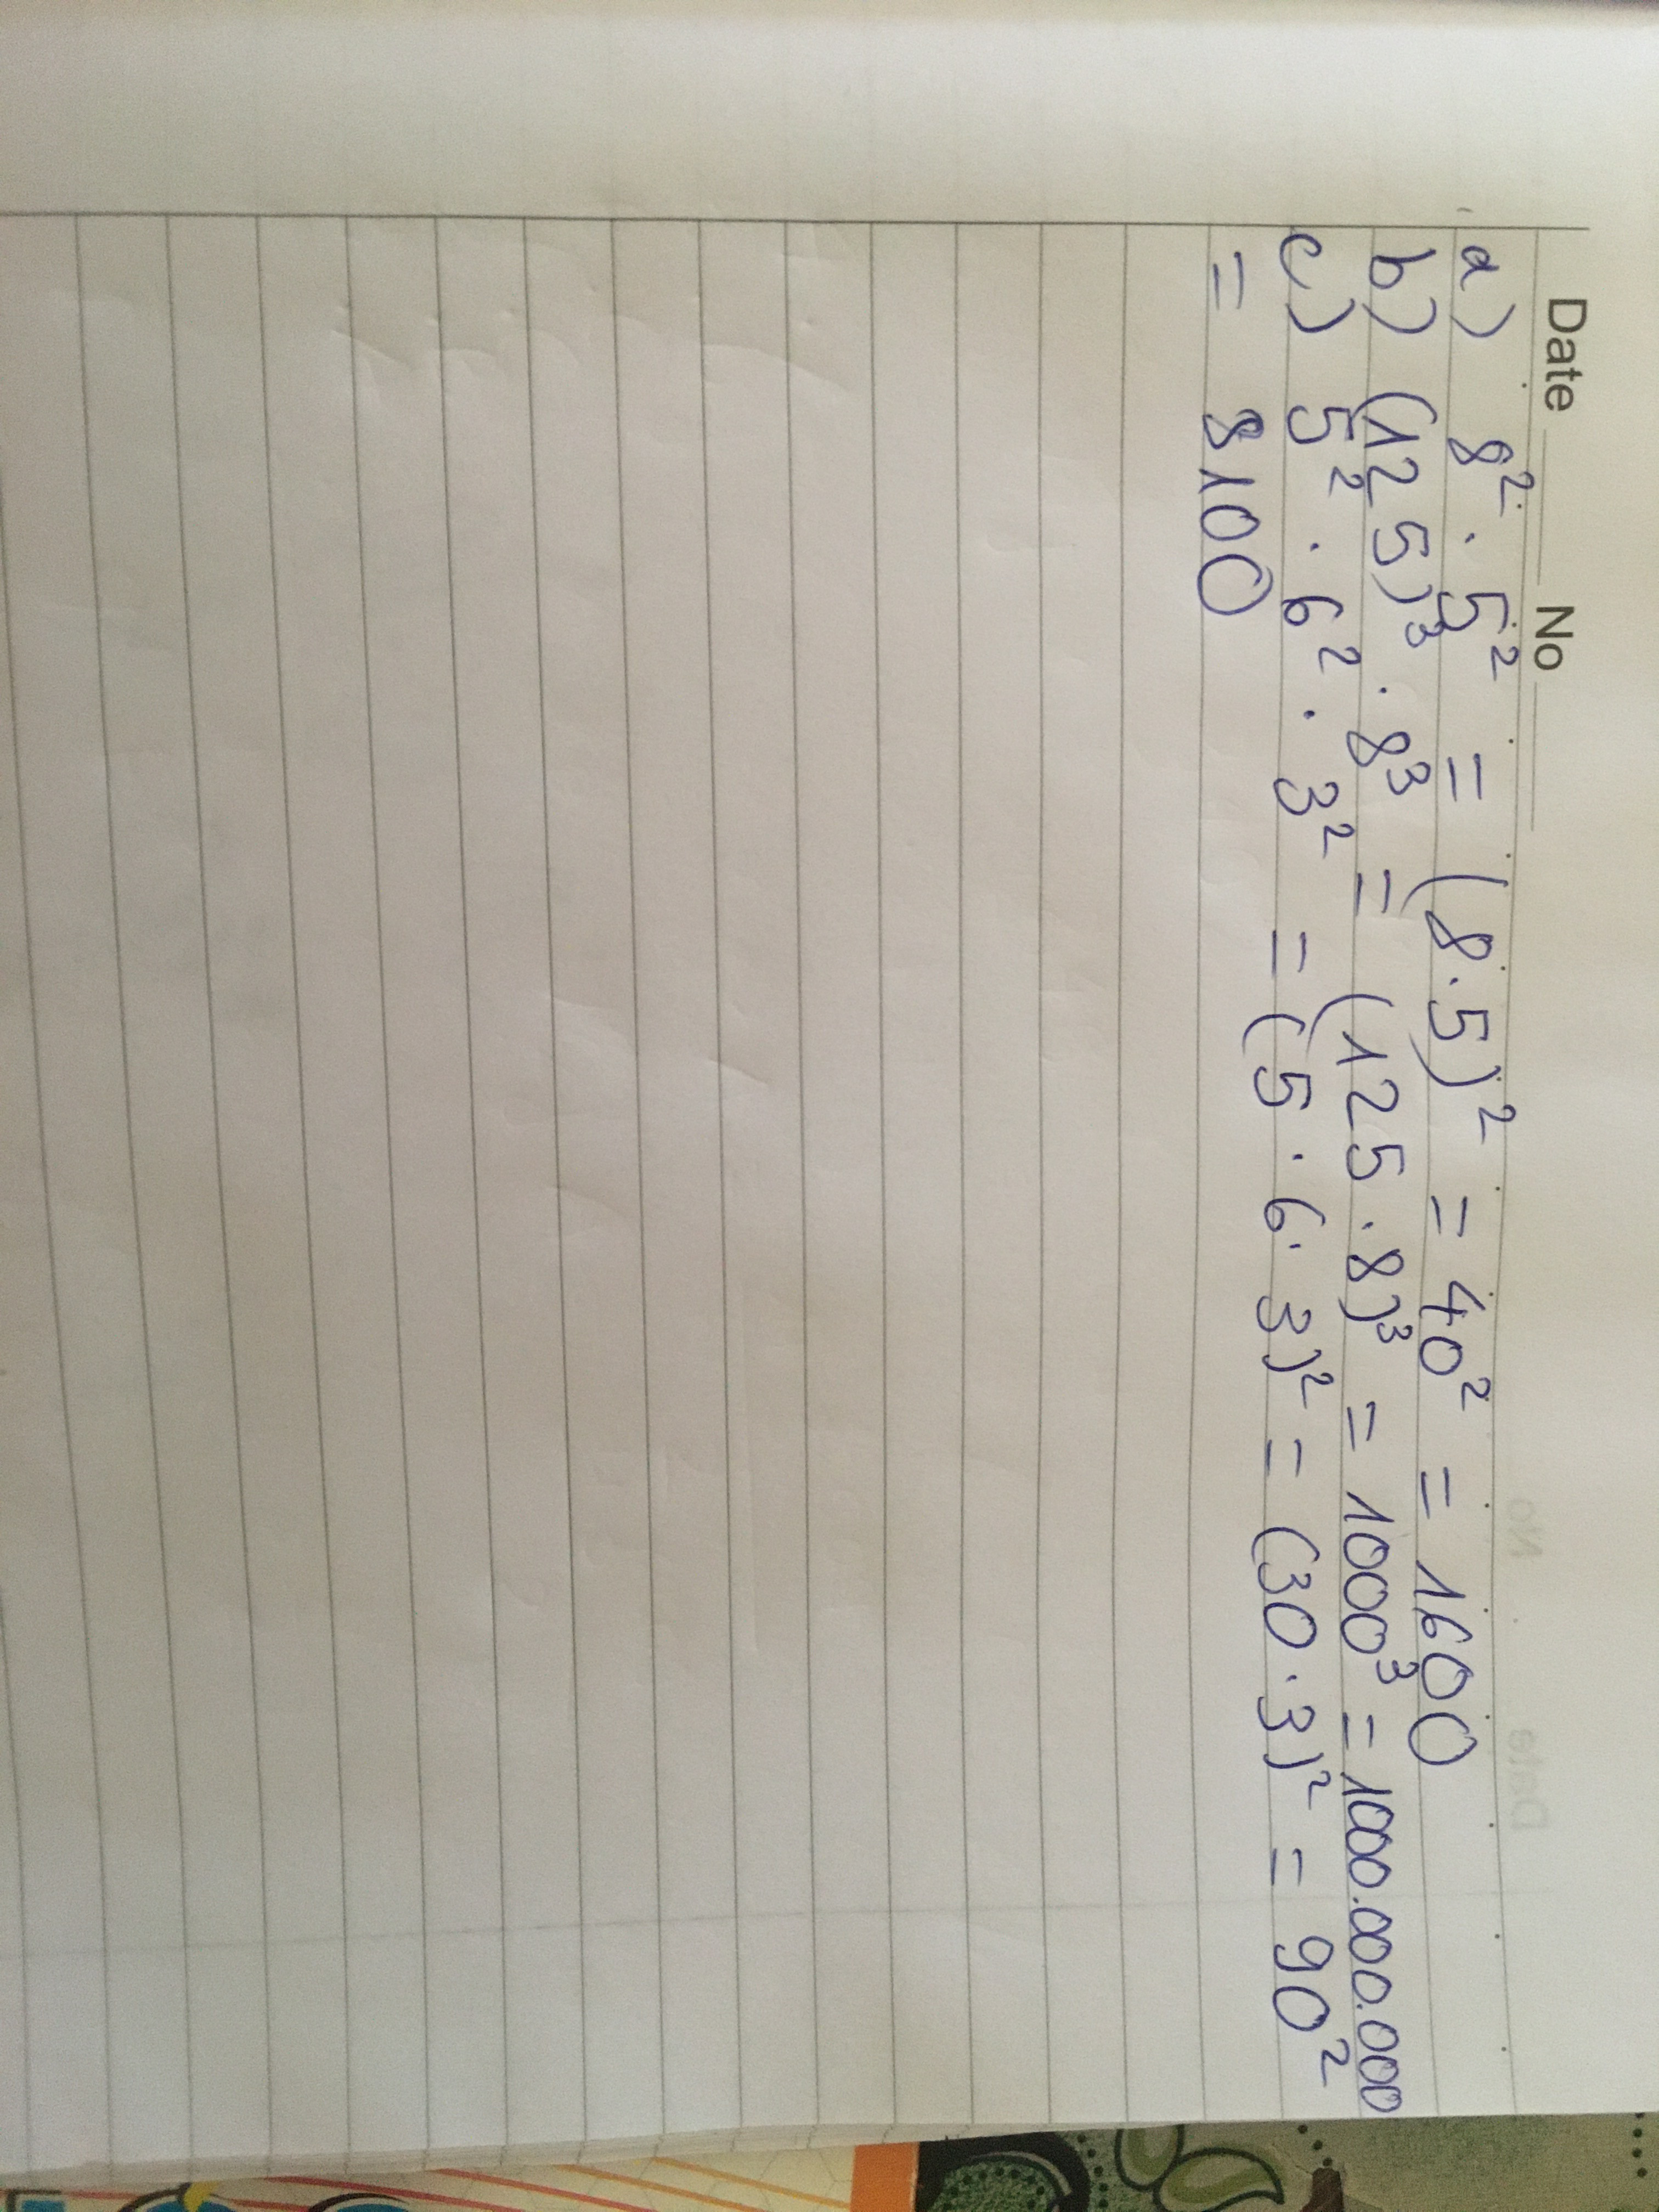 Date No
a) 8² · 5² = (8 . 5)² = 40² = 1600
b) (125)³ · 8³ = (125 . 8)³ = 1000³ = 1000.000.000
c) 5² · 6² · 3² = (5 · 6 · 3)² = (30 · 3)² = 90²
= 8100